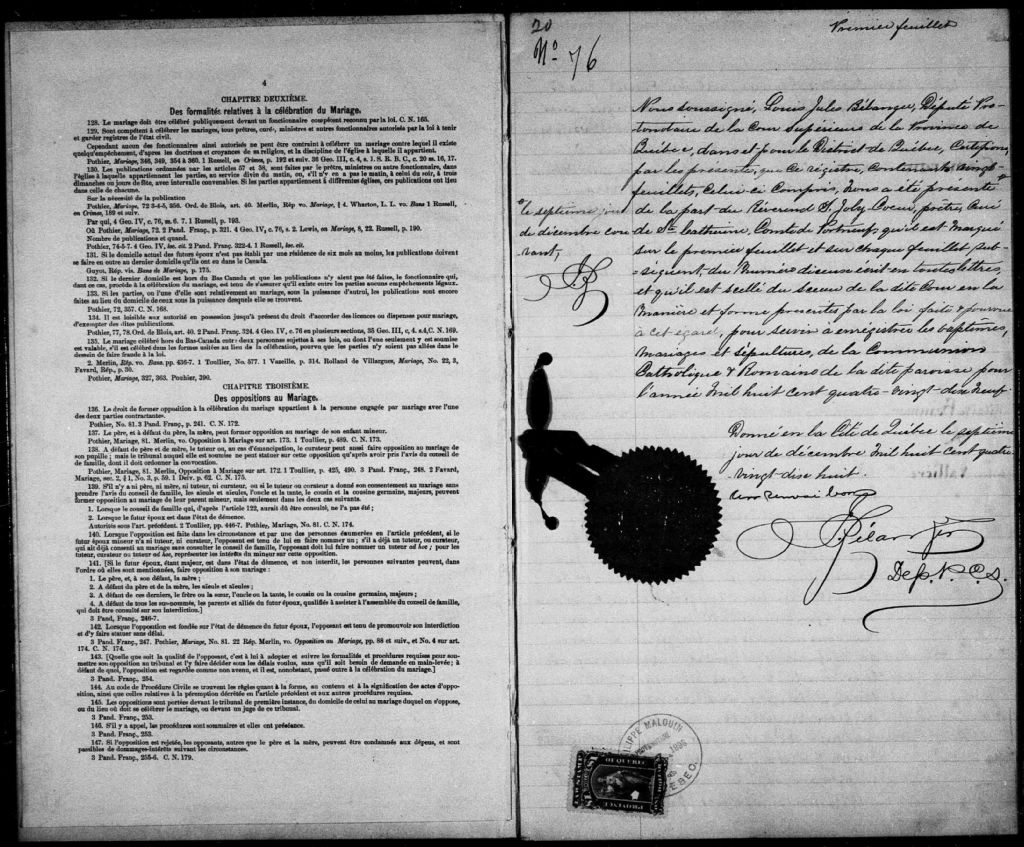 4
CHAPITRE DEUXIÈME.
Des formalités relatives à la célébration du Mariage.
128. Le mariage doit être célébré publiquement devant un fonctionnaire compétent reconnu par la loi. C. N. 165.
129. Sont compétents à célébrer les mariages, tous prêtres, curés, ministres et autres fonctionnaires autorisés par la loi à tenir
et garder registres de l'état civil.
Cependant aucun des fonctionnaires ainsi autorisés ne peut être contraint à célébrer un mariage contre lequel il existe
quelqu'empêchement, d'après les doctrines et croyances de sa religion, et la discipline de l'église à laquelle il appartient.
Pothier, Mariage, 346, 349, 354 à 360. 1 Russell, on Crimes, p. 192 et suiv. 36 Geo. III, c. 4, s. 1. S. R. B. C., c. 20 ss. 16, 17.
130. Les publications ordonnées par les articles 57 et 58, sont faites par le prêtre, ministre ou autre fonctionnaire, dans
l'église à laquelle appartiennent les parties, au service divin du matin, ou, s'il n'y en a pas le matin, à celui du soir, à trois
dimanches ou jours de fête, avec intervalle convenables. Si les parties appartiennent à différentes églises, ces publications ont lieu
dans celle de chacune.
Sur la nécessité de la publication
Pothier, Mariage, 72 3-4-5, 356. Ord. de Blois, art. 40. Merlin, Rép vo. Mariage, § 4. Wharton, L. L. vo. Bans 1 Russell,
on Crimes, 189 et suiv.
Par qui, 4 Geo. IV, c. 76, s. 6. 7. 1 Russell, p. 193.
Où Pothier, Mariage, 72. 2 Pand. Franç. p. 321. 4 Geo. IV, c. 76, s. 2. Lewis, on Mariage, 8, 22. Russell, p. 190.
Nombre de publications et quand.
Pothier, 74-5-7. 4 Geo. IV, loc. cit. 2 Pand. Franç. 322-4. 1 Russell, loc. cit.
131. Si le domicile actuel des futurs époux n'est pas établi par une résidence de six mois au moins, les publications doivent
se faire en outre au dernier domicile qu'ils ont eu dans le Canada.
Guyot, Rép. vis. Bans de Mariage, p. 175.
132. Si le dernier domicile est hors du Bas Canada et que les publications n'y aient pas été faites, le fonctionnaire qui,
dans ce cas, procède à la célébration du mariage, est tenu de s'assurer qu'il existe entre les parties aucuns empêchements légaux.
133. Si les parties, ou l'une d'elle sont relativement au mariage, sous la puissance d'autrui, les publications sont encore
faites au lieu du domicile de ceux sous la puissance desquels elle se trouvent.
Pothier, 72, 357. C. N. 168.
134. Il est loisible aux autorité en possession jusqu'à présent du droit d'accorder des licences ou dispenses pour mariage,
d'exempter des dites publications.
Pothier, 77, 78. Ord. de Blois, art. 40. 2 Pand Franç. 324. 4 Geo. IV, c. 76 en plusieurs sections, 35 Geo. III, c. 4. s.4, C. N. 169.
135. Le mariage célébré hors du Bas-Canada entre deux personnes sujettes à ses lois, ou dont l'une seulement y est soumise
est valable, s'il est célébré dans les formes usitées au lieu de la célébration, pourvu que les parties n'y soient pas allées dans le
dessein de faire fraude à la loi.
2. Merlin, Rép. vo. Bans. pp. 436-7. 1 Toullier, No. 577. 1 Vazeille. p. 314. Rolland de Villargues, Mariage, No. 22, 3,
Favard, Rép., p. 30.
Pothier, Mariage, 327, 363. Pouhier, 390.
CHAPITRE TROISIÈME.
Des oppositions au Mariage.
136. Le droit de former opposition à la célébration du mariage appartient à la personne engagée par mariage avec l'une
des deux parties contractantes.
Pothier, No. 81. 3 Pand Franç., p. 241. C. N. 172.
137. Le père, et à défaut du père, la mère, peut former opposition au mariage de son enfant mineur.
Pothier, Mariage, 81. Merlin, vo. Opposition à Mariage sur art. 173. 1 Toullier, p. 489. C. N. 173.
138. A défaut de père et de mère, le tuteur ou, au cas d'émancipation, le curateur peut aussi faire opposition au mariage de
son pupille ; mais le tribunal auquel elle est soumise ne peut statuer sur cette opposition qu'après avoir pris l'avis du conseil de
famille, dont il doit ordonner la convocation.
Pothier, Mariage, 81. Merlin, Opposition à Mariage sur art. 172. 1 Toullier, p. 425, 490. 3 Pand. Franç., 248. 2 Favard,
Mariage, sec. 2, § 1, No. 3, p. 59. 1 Delv. p. 62. C. N. 175.
139. S'il n'y a ni père, ni mère, ni tuteur, ni curateur, ou si le tuteur ou curateur a donné son consentement au mariage sans
prendre l'avis du conseil de famille, les aïeuls et aïeules, l'oncle et la tante, le cousin et la cousine germains, majeurs, peuvent
former opposition au mariage de leur parent mineur, mais seulement dans les deux cas suivants.
1. Lorsque le conseil de famille qui, d'après l'article 122, aurait dû être consulté, ne l'a pas été ;
2. Lorsque le futur époux est dans l'état de démence.
Autorités sous l'art. précédent. 2 Toullier, pp. 446-7. Pothier, Mariage, No. 81. C. N. 174.
140. Lorsque l'opposition est faite dans les circonstances et par une des personnes énumérées en l'article précédent, si le
futur époux mineur n'a ni tuteur, ni curateur, l'opposant est tenu de lui en faire nommer un ; s'il a déjà un tuteur, ou curateur,
qui ait déjà consenti au mariage sans consulter le conseil de famille, l'opposant doit lui faire nommer un tuteur ad hoc ; pour les
tuteur, curateur ou tuteur ad hoc, représenter les intérêts du mineur sur cette opposition.
141. [Si le futur époux, étant majeur, est dans l'état de démence, et non interdit, les personnes suivantes peuvent, dans
l'ordre où elles sont mentionnées, faire opposition à son mariage :
1. Le père, et, à son défaut, la mère ;
2. A défaut du père et de la mère, les aïeuls et aïeules ;
3. A défaut de ces derniers, le frère ou la sœur, l'oncle ou la tante, le cousin ou la cousine germains, majeurs ;
4. A défaut de tous les sus-nommés, les parents et alliés du futur époux, qualifiés à assister à l'assemblée du conseil de famille,
qui doit être consulté sur son interdiction.]
3 Pand. Franç., 246-7.
142. Lorsque l'opposition est fondée sur l'état de démence du futur époux, l'opposant est tenu de promouvoir son interdiction
et d'y faire statuer sans délai.
3 Pand. Franç., 247. Pothier, Mariage, No. 81. 22 Rép. Merlin, vo. Opposition au Mariage, pp. 88 et suiv., et No. 4 sur art.
174. C. N. 174.
143. [Quelle que soit la qualité de l'opposant, c'est à lui à adopter et suivre les formalités et procédures requises pour sou-
mettre son opposition au tribunal et l'y faire décider sous les délais voulus, sans qu'il soit besoin de demande en main-levée ; à
défaut de quoi, l'opposition est regardée comme non avenu, et il est, nonobstant, passé outre à la célébration du mariage.]
3 Pand. Franç., 254.
144. Au code de Procédure Civile se trouvent les règles quant à la forme, au contenu et à la signification des actes d'oppo-
sition, ainsi que celles relatives à la péremption décrétée en l'article précédent et aux autres procédures requises.
145. Les oppositions sont portées devant le tribunal de première instance, du domicile de celui au mariage duquel on s'oppose,
ou du lieu où doit se célébrer le mariage, ou devant un juge de ce tribunal.
3 Pand. Franç., 253.
146. S'il y a appel, les procédures sont sommaires et elles ont préséance.
3 Pand. Franç., 253.
147. Si l'opposition est rejetée, les opposants, autres que le père et la mère, peuvent être condamnés aux dépens, et sont
passibles de dommages-intérêts suivant les circonstances.
3 Pand. Franç., 255-6. C. N. 179.
20
No 76
Premier feuillet
Nous soussigné, Louis Jules Bélanger, Député Pro-
tonotaire de la Cour Supérieure de la Province de
Québec, dans et pour le District de Québec, Certifions
par les présentes, que Ce registre, Contenant vingt
feuillets, Celui-ci Compris, Nous a été présenté
de la part du Révérend J. Joby Curé, prêtre, Curé
de Ste Catherine, Comté de Portneuf, qu'il est marqué
sur le premier feuillet et sur chaque feuillet sub-
séquent, du Numéro d'iceux écrit en toutes lettres,
et qu'il est scellé du sceau de la dite Cour en la
Manière et forme prescrites par la loi faite & pourvue
à cet égard, pour servir à enregistrer les baptêmes,
Mariages et Sépultures, de la Communion
Catholique & Romaine de la dite paroisse pour
l'année Mil huit cent quatre-vingt-dix-Neuf
le septième jour
de décembre cou-
rant,
Donné en la Cité de Québec le septième
jour de décembre Mil huit Cent quatre
vingt dix huit.
un renvoi bon
Bélanger
Dep. P. C. S.
PHILIPPE MALOUIN
QUÉBEC
LAW STAMP
PROVINCE
OF QUEBEC
$1